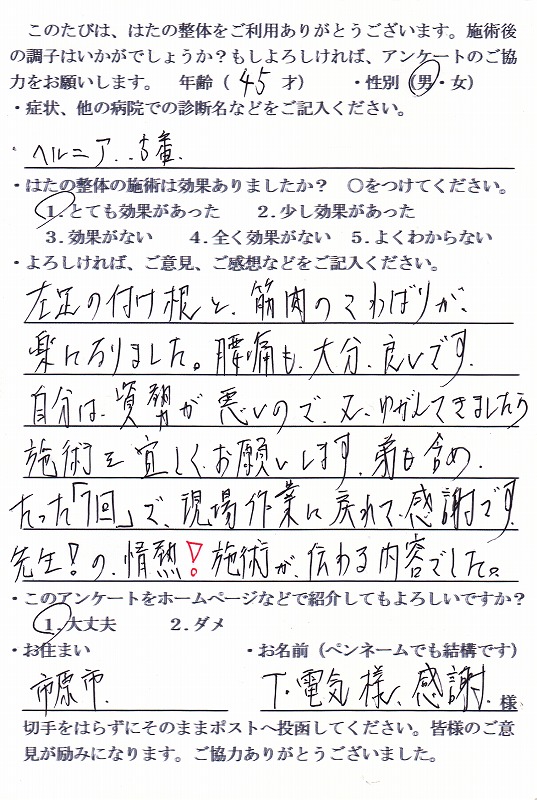 このたびは、はたの整体をご利用ありがとうございます。施術後
の調子はいかがでしょうか？もしよろしければ、アンケートのご協
力をお願いします。 年齢（ 45 才） ・性別（男・女）
・症状、他の病院での診断名などをご記入ください。
ヘルニア．．
・はたの整体の施術は効果ありましたか？ 〇をつけてください。
1.とても効果があった 2.少し効果があった
3.効果がない 4.全く効果がない 5.よくわからない
・よろしければ、ご意見、ご感想などをご記入ください。
左足の付け根と、筋肉のこわばりが、
楽になりました。腰痛も、大分、良いです。
自分は、資勢が悪いので、又、ゆがんできましたら
施術を宜しく、お願いします。弟も含め、
たった「1回」で、現場作業に戻れて、感謝です。
先生！の、情熱！施術が、伝わる内容でした。
・このアンケートをホームページなどで紹介してもよろしいですか？
1.大丈夫 2.ダメ
・お住まい ・お名前（ペンネームでも結構です）
市原市. T・電気様、感謝. 様
切手をはらずにそのままポストへ投函してください。皆様のご意
見が励みになります。ご協力ありがとうございました。